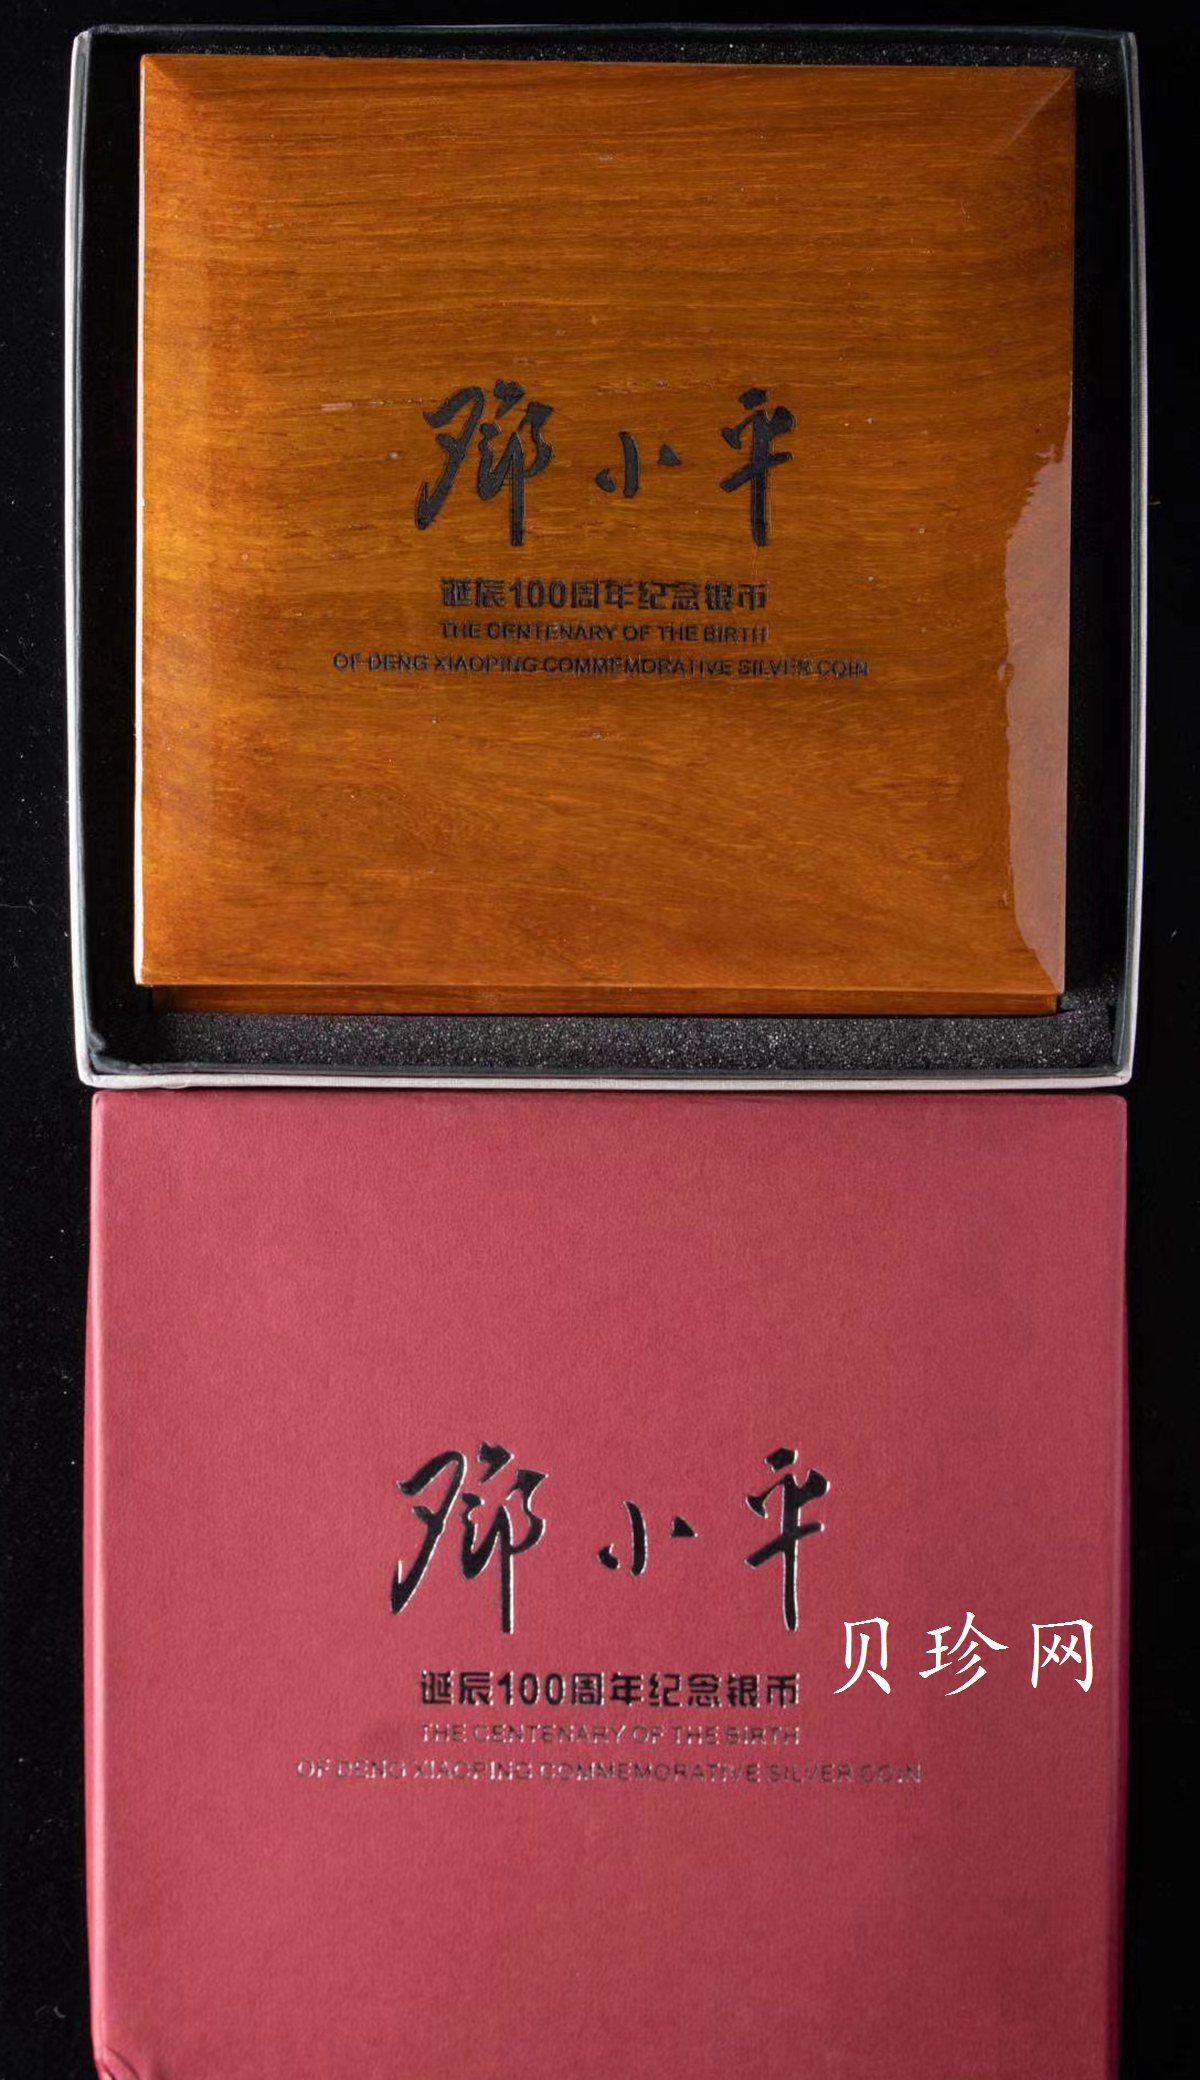 鄧小平
诞辰100周年纪念银币
THE CENTENARY OF THE BIRTH
OF DENG XIAOPING COMMEMORATIVE SILVER COIN
鄧小平
贝珍网
诞辰100周年纪念银币
THE CENTENARY OF THE BIRTH
OF DENG XIAOPING COMMEMORATIVE SILVER COIN